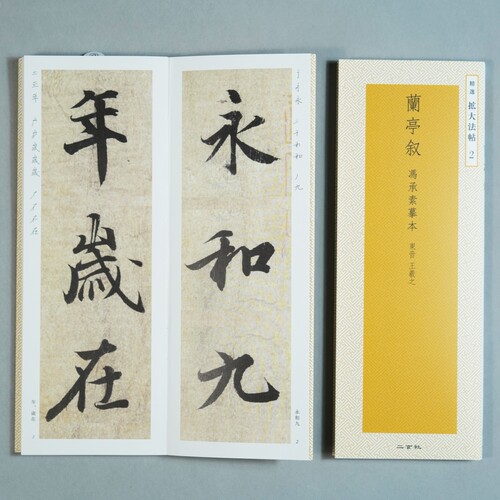 永和九
年歳在
永和九
2
精選 拡大法帖 2
蘭亭叙 馮承素摹本 東晋 王羲之
二玄社